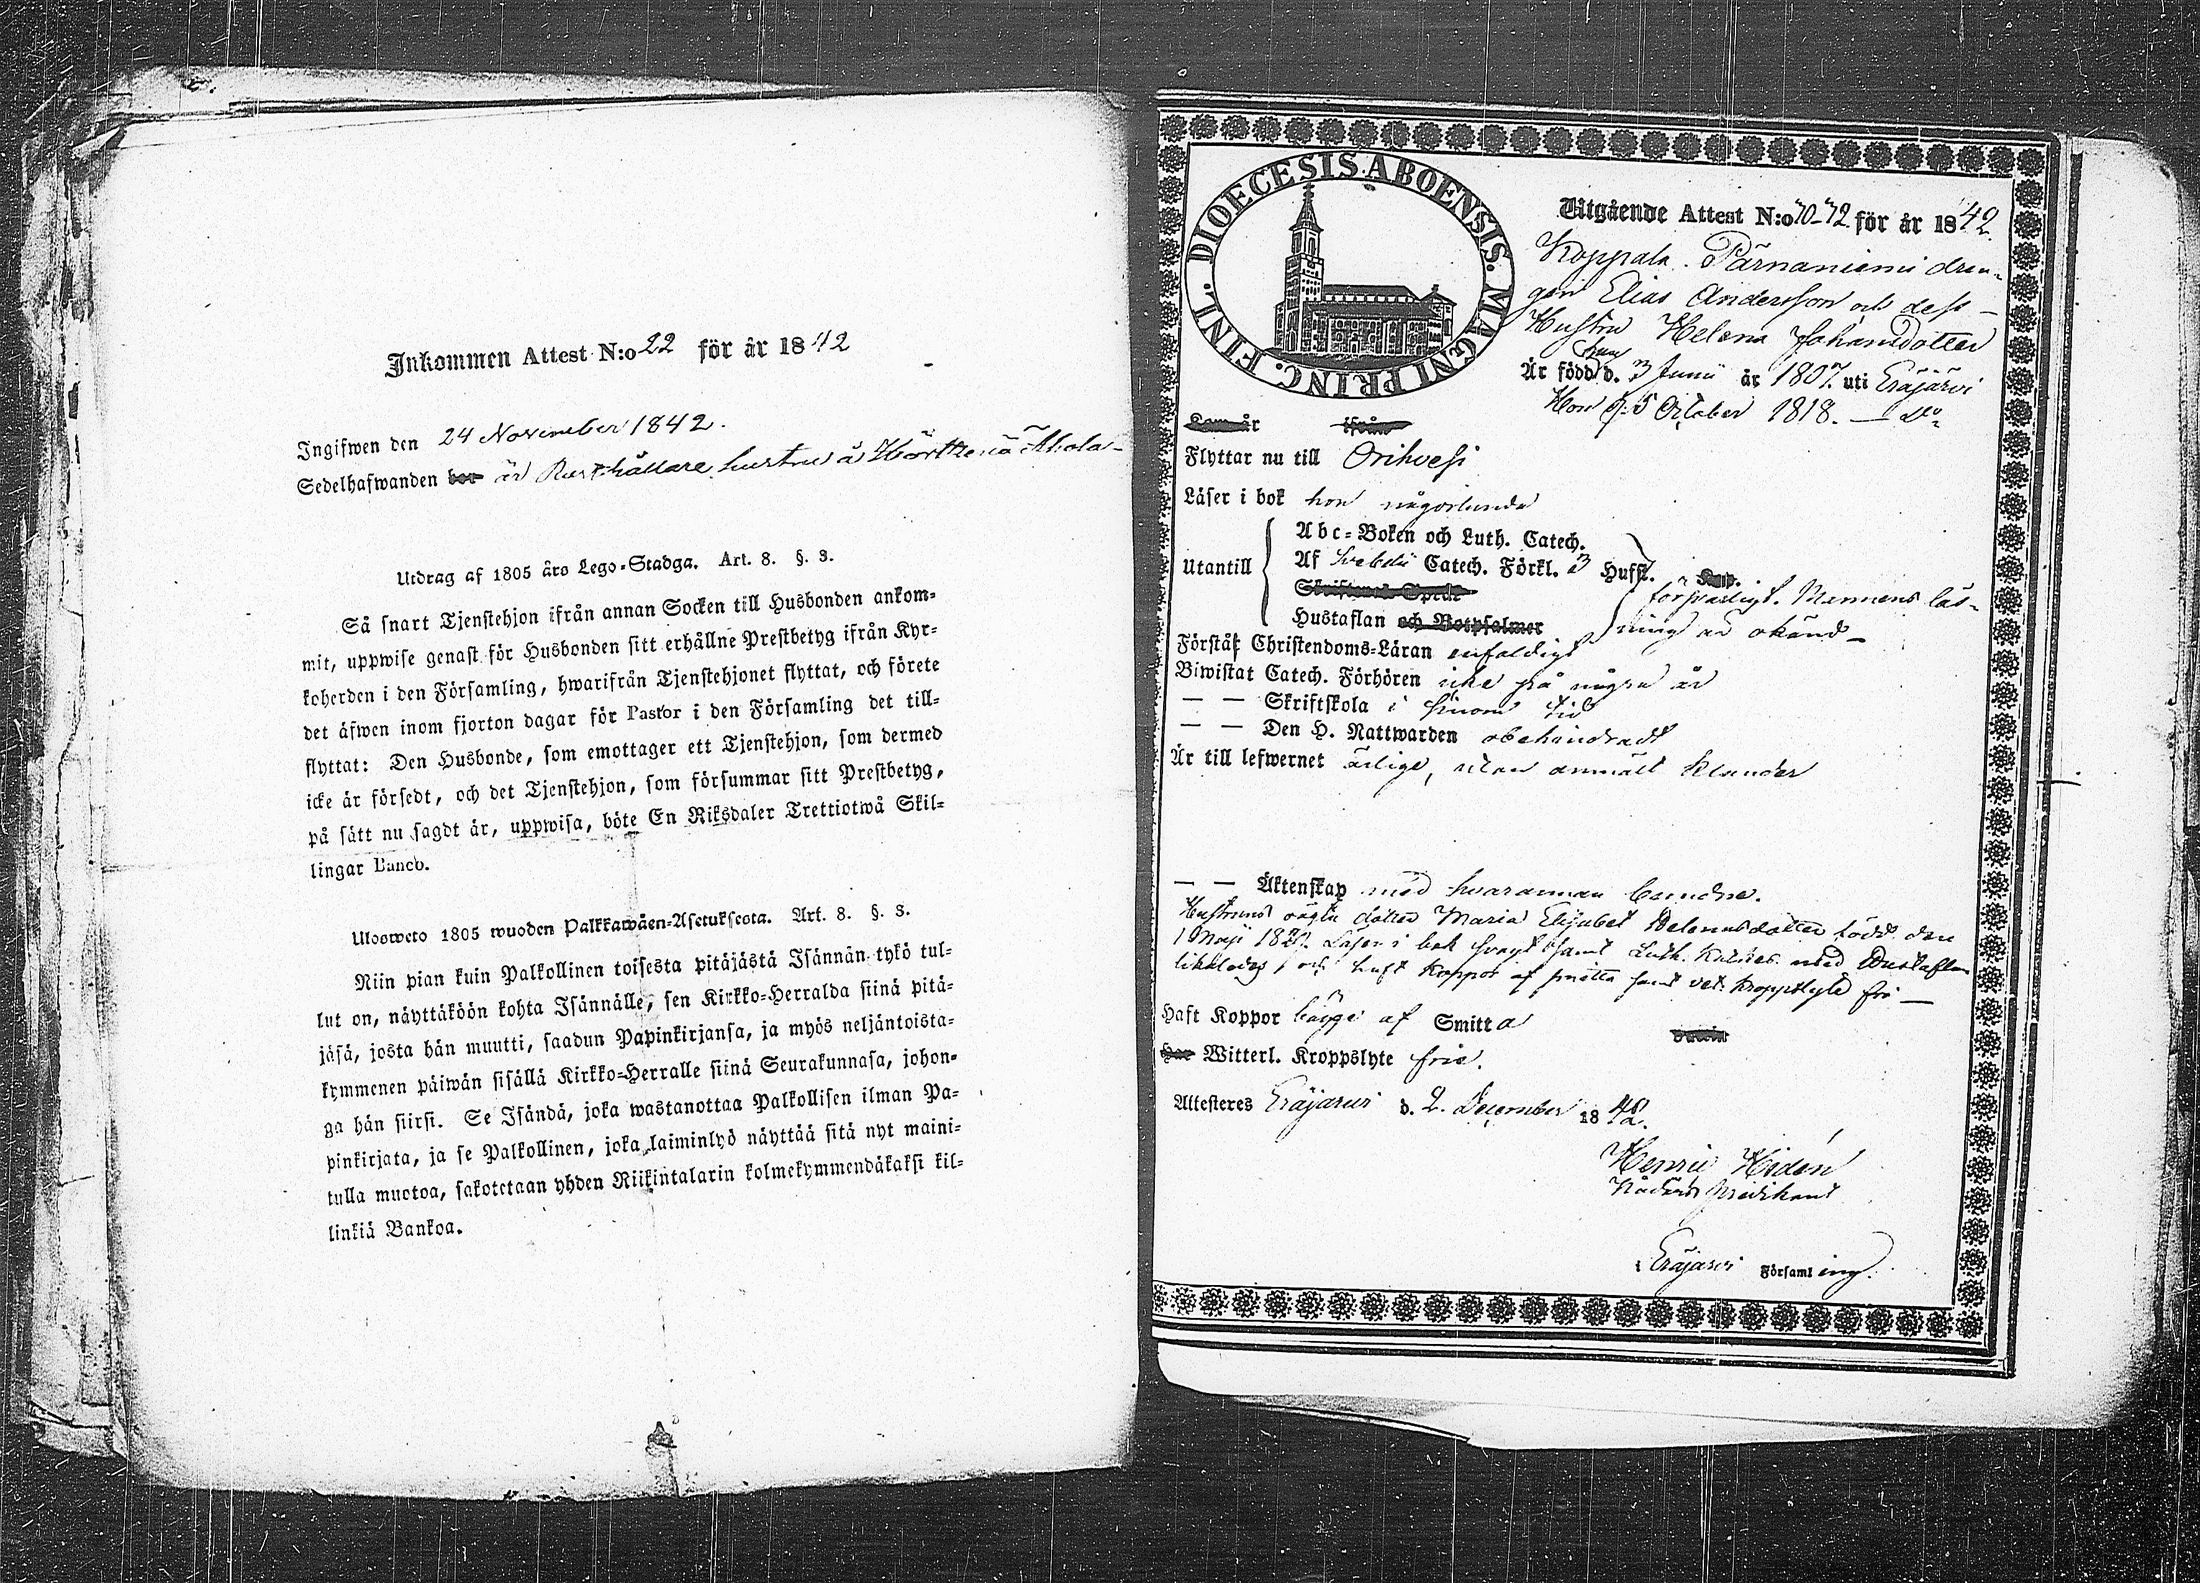 Inkommen Attest N:o 22 för år 1842
Ingifwen den 24 November 1842.
Sedelhafwanden bor är Rusthållare hustru å Hörtkenä Ahola
Utdrag af 1805 års Lego-Stadga. Art. 8. §. 3.
Så snart Tjenstehjon ifrån annan Socken till Husbonden ankom-
mit, uppwise genast för Husbonden sitt erhållne Prestbetyg ifrån Kyr-
koherden i den Församling, hwarifrån Tjenstehjonet flyttat, och förete
det äfwen inom fjorton dagar för Pastor i den Församling det till-
flyttat: Den Husbonde, som emottager ett Tjenstehjon, som dermed
icke är försedt, och det Tjenstehjon, som försummar sitt Prestbetyg,
på sätt nu sagdt är, uppwisa, böte En Riksdaler Trettiotwå Skil-
lingar Banco.
Ulosweto 1805 wuoden Palkkawäen-Asetuksesta. Art. 8. §. 3.
Niin pian kuin Palkollinen toisesta pitäjästä Isännän tykö tul-
lut on, näyttäköön kohta Isännälle, sen Kirkko-Herralda siinä pitä-
jäsä, josta hän muutti, saadun Papinkirjansa, ja myös neljäntoista-
kymmenen päiwän sisällä Kirkko-Herralle siinä Seurakunnasa, johon-
ga hän siirsi. Se Isändä, joka wastanottaa Palkollisen ilman Pa-
pinkirjata, ja se Palkollinen, joka laiminlyö näyttää sitä nyt maini-
tulla muotoa, sakotetaan yhden Riikintalarin kolmekymmendäkaksi kil-
linkiä Bankoa.
DIOECESIS ABOENSIS. MAGNI PRINC. FINL.
Utgående Attest N:o 70-72 för år 1842.
Koppala Pärnäniemi drän-
gen Elias Andersson och dess
Hustru Helena Johansdotter
han
Är född d. 3 Junii år 1807. uti Eräjärvi
Hon d. 5 October 1818. — do
Kom år ifrån
Flyttar nu till Orihvesi
Läser i bok hon någorlunda
Abc-Boken och Luth. Catech.
Utantill Af Svebelii Catech. Förkl. 3 Hufst. Kap.
Skriftenes Språk försvarligt. Mannens läs-
Hustaflan och Botpsalmer ning är okänd
Förstår Christendoms-Läran enfaldigt
Biwistat Catech. Förhören icke på några år
— — Skriftskola i sinom tid
— — Den H. Nattwarden obehindradt
Är till lefwernet ärlige, utan anmält klander
— — Äktenskap med hvarannan bundne.
Hustruns oägta dotter Maria Elisabet Helenasdotter född den
1 Maji Läser i bok svagt samt Luth. Kateches med Hustaflan
likaledes, och haft koppor af smitta samt vet. kroppslyte fri
Haft Koppor bägge af Smitta
Har Witterl. Kroppslyte frie.
Attesteres Eräjärvi d. 2. December 1842.
Henric Hidén
Nådårs predikant
i Eräjärvi Församling.